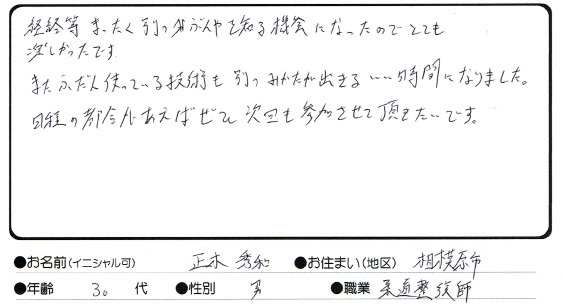 経絡等 まったく別の分ぶんやを知る機会になったのでとても
楽しかったです
またふだん使っている技術も別のみかたが出来るいい時間になりました。
日程の都合があえばぜひ次回も参加させて頂きたいです。
●お名前(イニシャル可) 正木 秀和 ●お住まい(地区) 相模原市
●年齢 30 代 ●性別 男 ●職業 柔道整復師